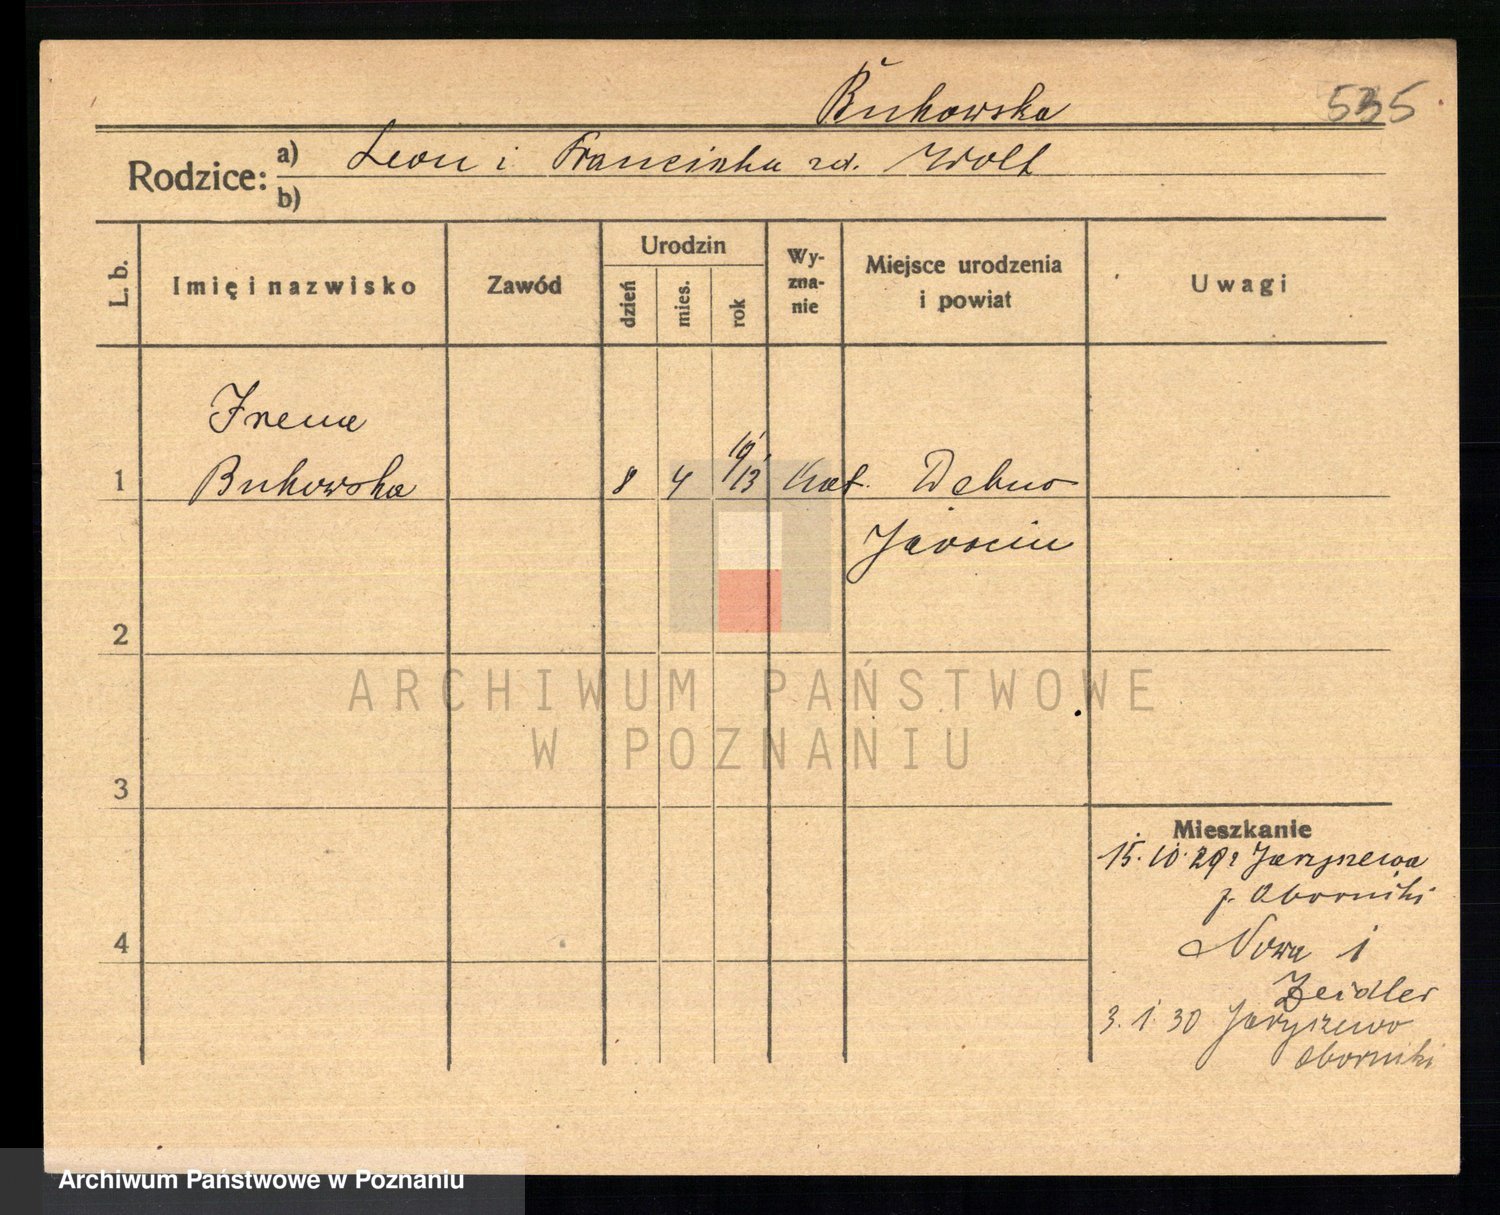 Bukowska
535
Rodzice:
a) Leon i Franciszka zd. Wolf
b)
L. b.
Imię i nazwisko
Zawód
Urodzin
dzień
mies.
rok
Wy-
zna-
nie
Miejsce urodzenia
i powiat
Uwagi
Irena
1 Bukowska 8 4 1913 kat. Dębno
Jarocin
2
ARCHIWUM PAŃSTWOWE
W POZNANIU
3
Mieszkanie
15.10.29 r Jaryszewa
p. Oborniki
4
Nowa 1
Zeidler
3.1.30 Jaryszewo
Oborniki
Archiwum Państwowe w Poznaniu